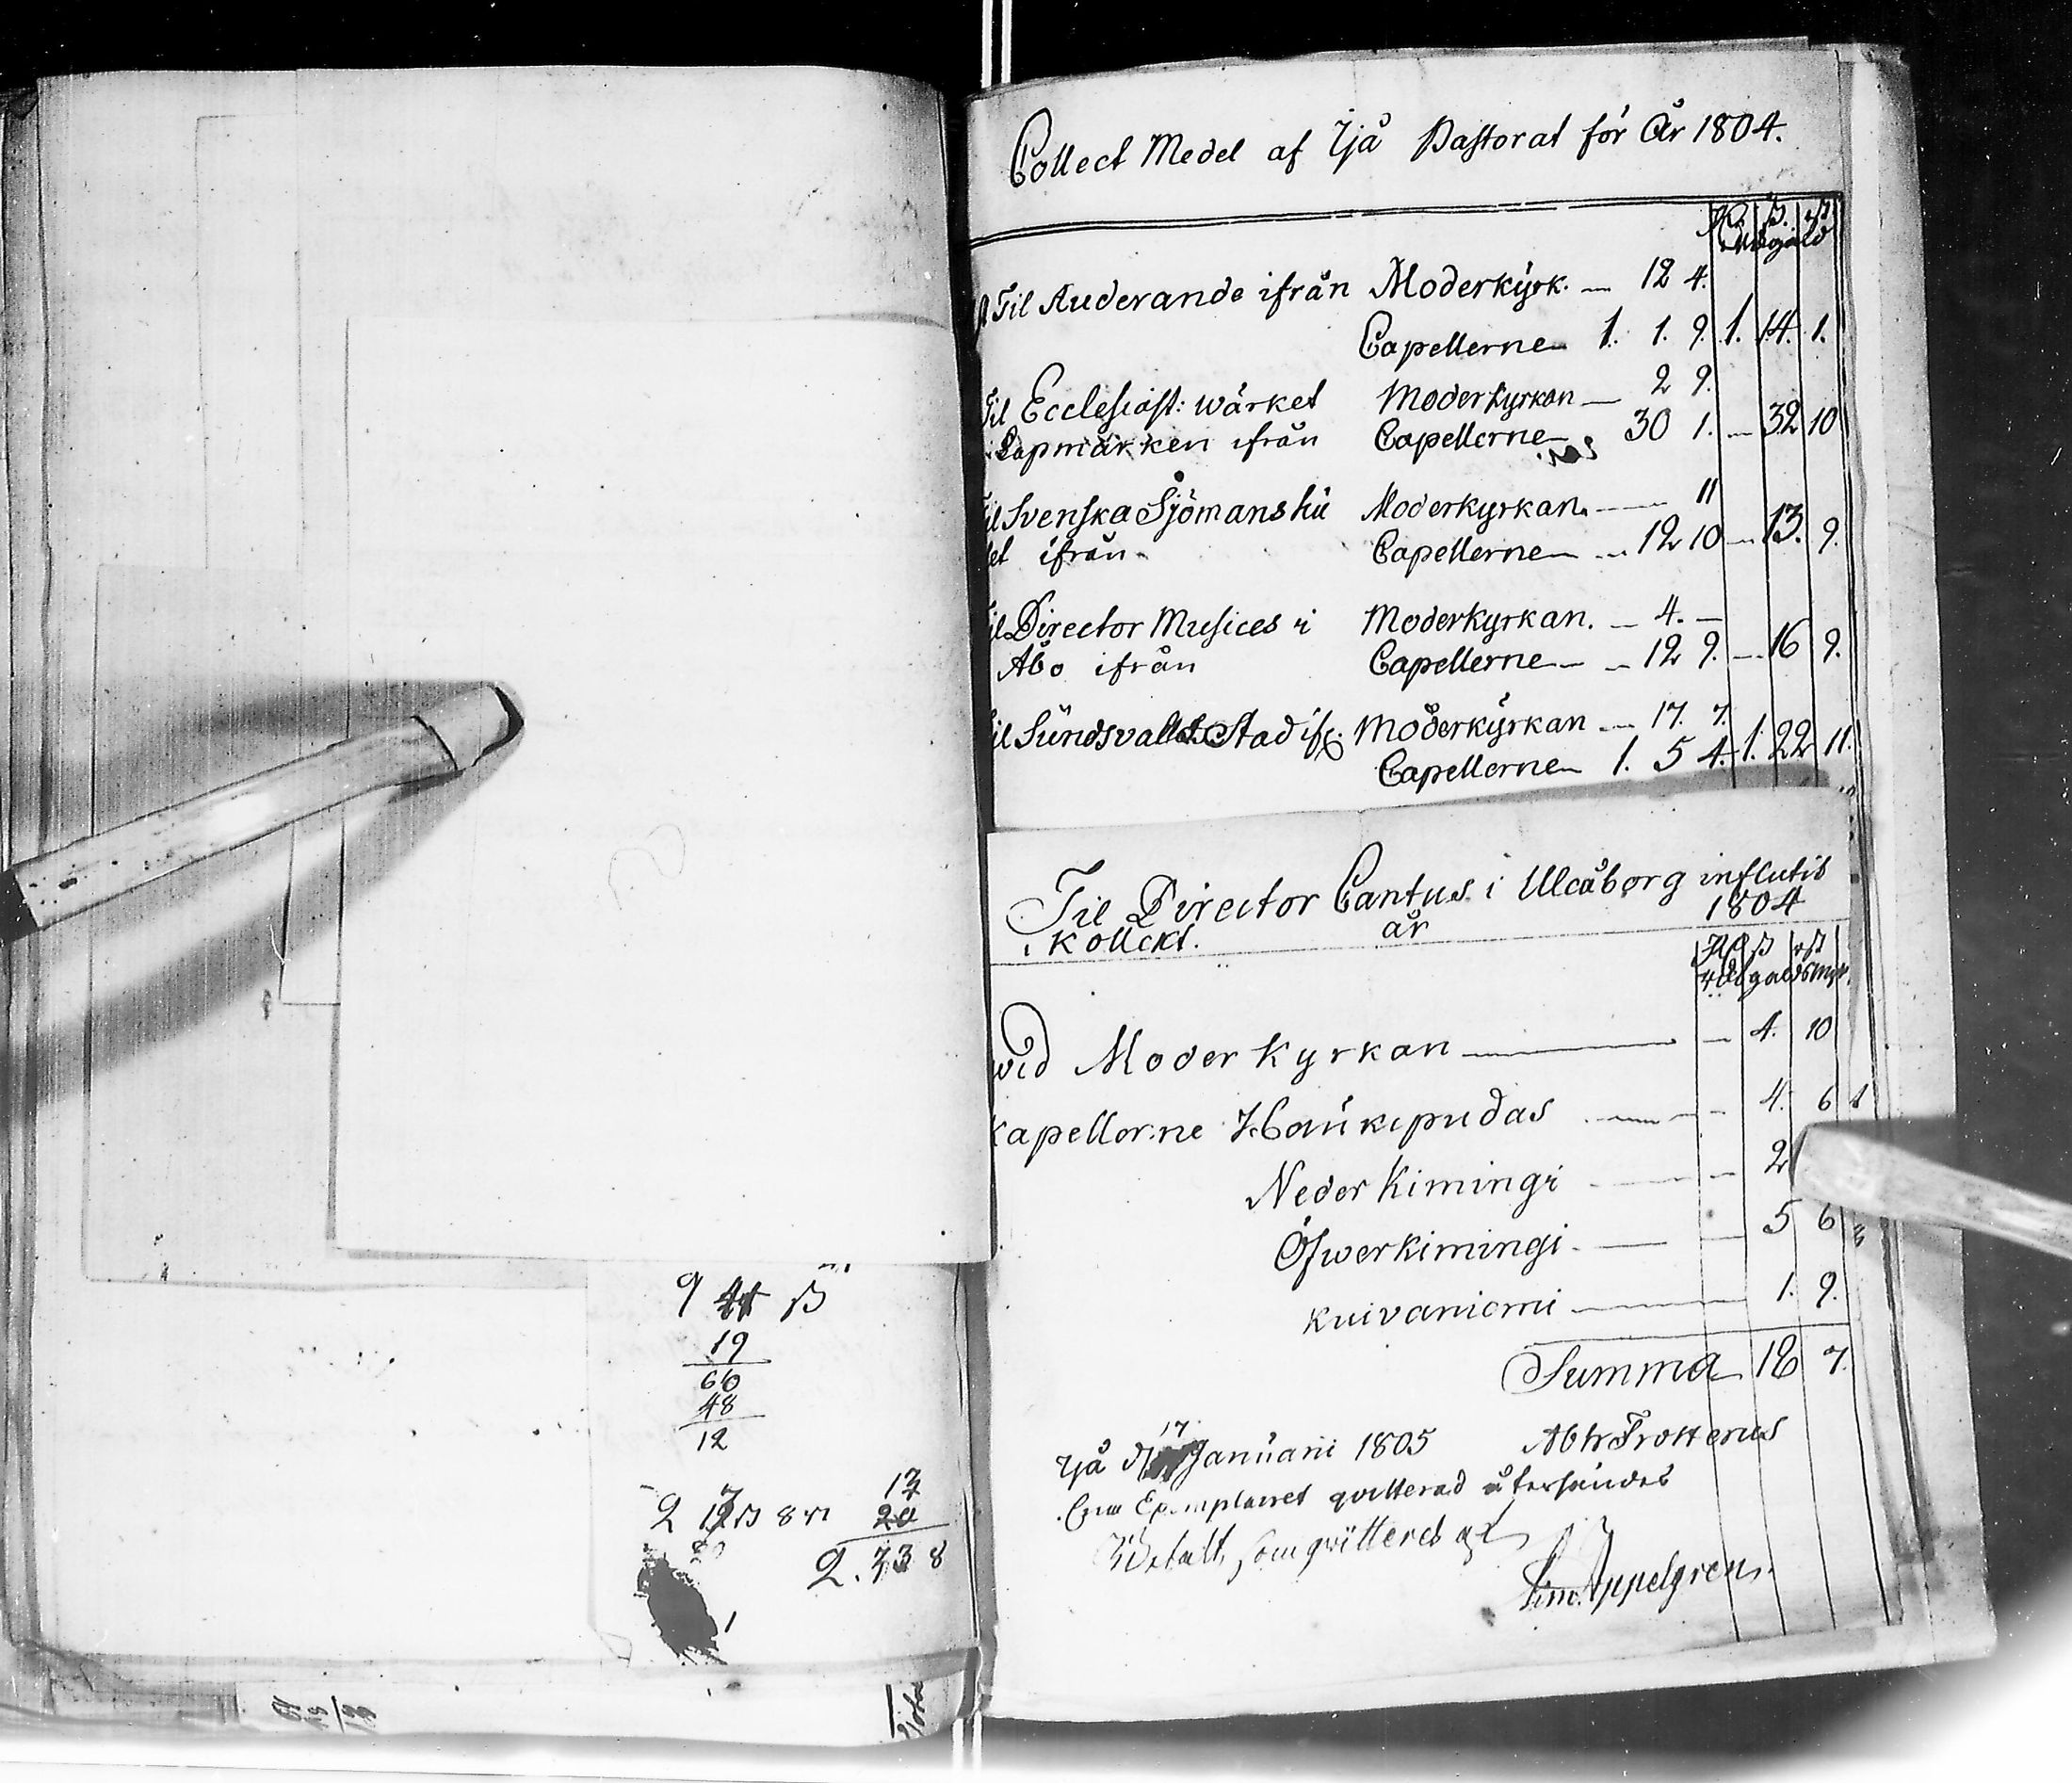 9 44 ß
19
60
48
12
2 12 ß 8 rt 13
20
2. 33 8
1
Collect Medel af Ijå Pastorat för År 1804.
Rd ß rst
Riksgäld
Til Studerande ifrån Moderkyrk. — 12 4.
Capellerne 1. 1. 9. 1. 14. 1.
Til Ecclesiast: wärket Moderkyrkan — 2 9.
i Lapmarken ifrån Capellerne 30 1. — 32 10
Til Svenska Sjömanshu Moderkyrkan. — 11
set ifrån Capellerne — 12 10 — 13. 9.
Til Director Musices i Moderkyrkan. — 4. —
Åbo ifrån Capellerne — 12 9. — 16 9.
Til Sundsvalls Stad ifr. Moderkyrkan — 17. 7.
Capellerne 1. 5 4. 1. 22 11.
Til Director Cantus i Uleåborg influtit
i Kollekt. år 1804
Rd ß rst
Riksgäldsmynt
wid Moderkyrkan — — 4. 10
Kapellerne Haukipudas — — 4. 6
Neder Kimingi — — 2
Öfwerkimingi — — 5 6
Kuivaniemi — 1. 9.
Summa 18 7.
17
Ijå d. Januarii 1805 Abr Frosterus
Ena Exemplaret qvitterad återsändes
Betalt, som qvitteras af
Sim. Appelgren